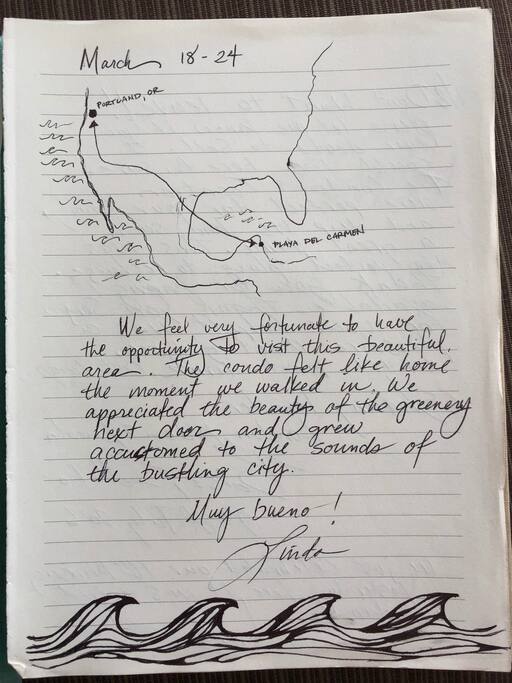 March 18-24
PORTLAND, OR
PLAYA DEL CARMEN
We feel very fortunate to have
the opportunity to visit this beautiful
area. The condo felt like home
the moment we walked in. We
appreciated the beauty of the greenery
next door and grew
accustomed to the sounds of
the bustling city.
Muy bueno!
Linda